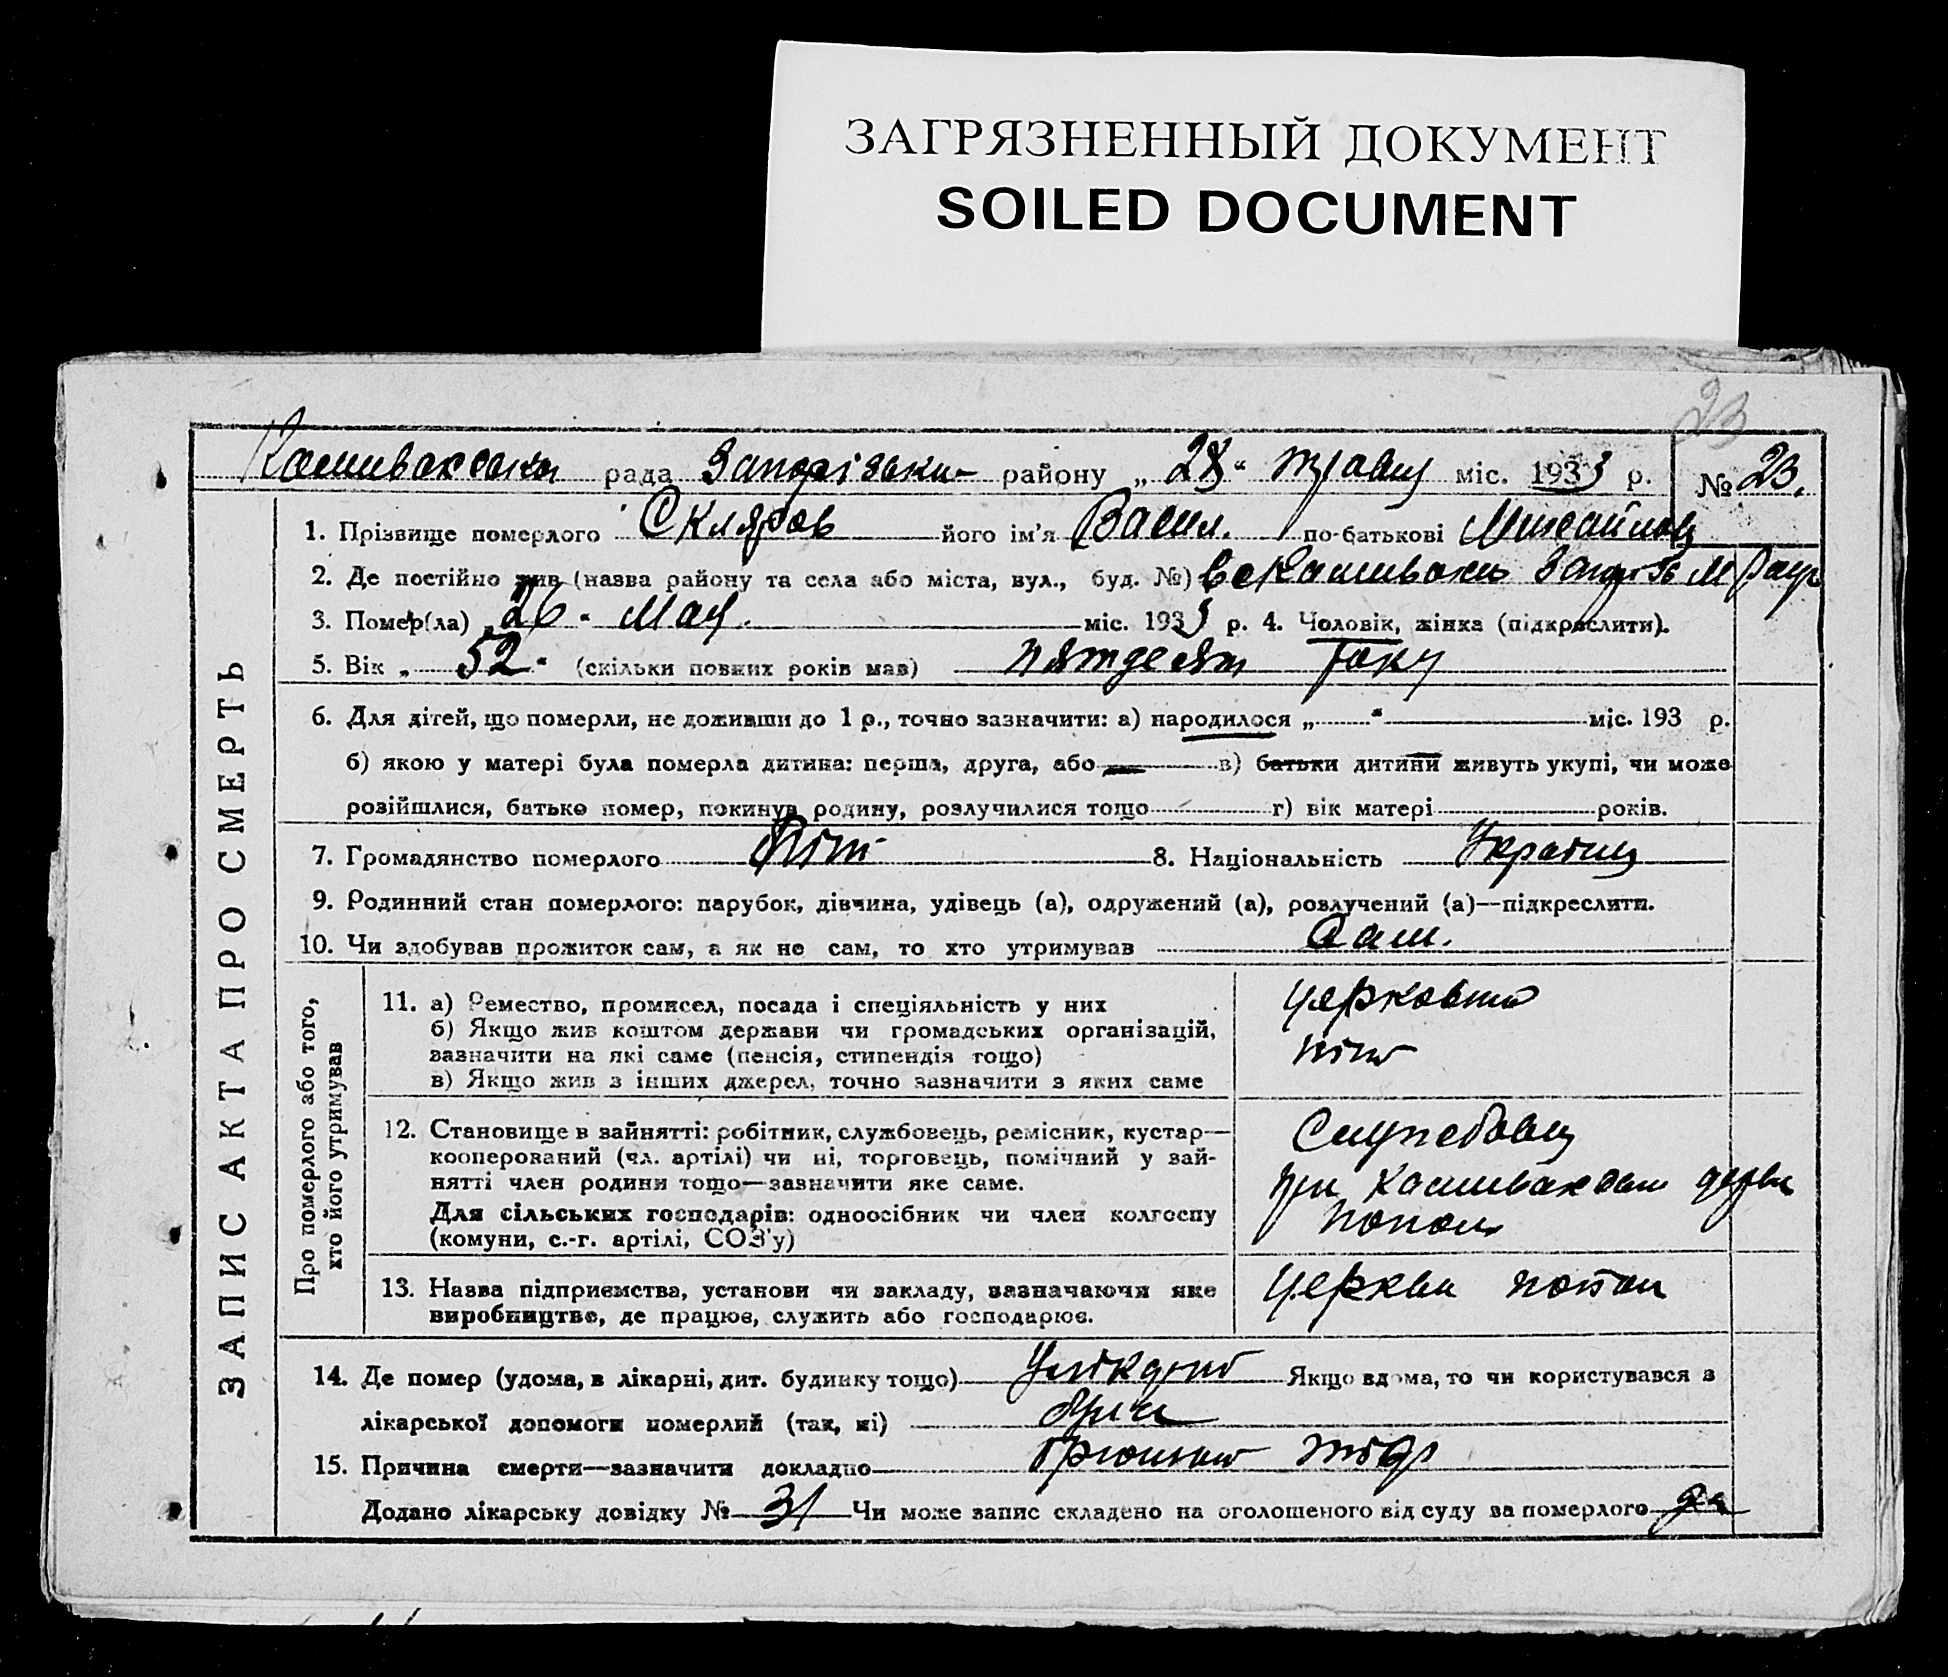 ЗАГРЯЗНЕННЫЙ ДОКУМЕНТ
SOILED DOCUMENT
23
рада район у „28“ міс. 1933 р. № 23.
1. Прізвище померлого Скляров його ім'я Васил. по-батькові
2. Де постійно жив (назва району та села або міста, вул., буд. №)
3. Помер(ла) „26“ Мая міс. 1933 р. 4. Чоловік, жінка (підкреслити).
5. Вік „52“ (скільки повних років мав) пятдесят
6. Для дітей, що померли, не доживши до 1 р., точно зазначити: а) народилося „ “ міс. 193 р.
б) якою у матері була померла дитина: перша, друга, або в) батьки дитини живуть укупі, чи може
розійшлися, батько помер, покинув родину, розлучилися тощо г) вік матері років.
7. Громадянство померлого 8. Національність Украинц
9. Родинний стан померлого: парубок, дівчина, удівець (а), одружений (а), розлучений (а)—підкреслити.
10. Чи здобував прожиток сам, а як не сам, то хто утримував Сам.
ЗАПИС АКТА ПРО СМЕРТЬ
Про померлого або того,
хто його утримував
11. а) Ремество, промисел, посада і спеціяльність у них
б) Якщо жив коштом держави чи громадських організацій,
зазначити на які саме (пенсія, стипендія тощо)
в) Якщо жив з інших джерел, точно зазначити з яких саме
12. Становище в зайнятті: робітник, службовець, ремісник, кустар—
кооперований (чл. артілі) чи ні, торговець, помічний у зай-
нятті член родини тощо—зазначити яке саме.
Для сільських господарів: одноосібник чи член колгоспу
(комуни, с.-г. артілі, СОЗ'у)
при
попом
13. Назва підприємства, установи чи закладу, зазначаючи яке
виробництво, де працює, служить або господарює.
Церкви попом
14. Де помер (удома, в лікарні, дит. будинку тощо) Якщо вдома, то чи користувався з
лікарської допомоги померлий (так, ні)
15. Причина смерти—зазначити докладно
Додано лікарську довідку № 31 Чи може запис складено на оголошеного від суду за померлого